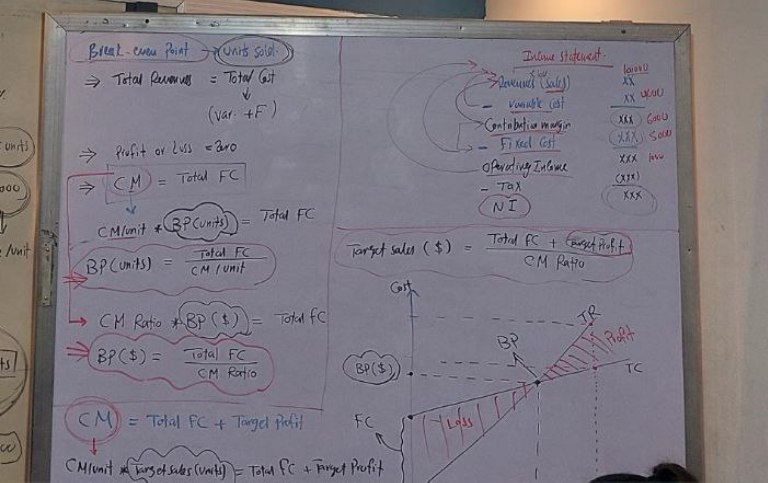 Break-even Point → units sold.
⇒ Total Revenues = Total Cost
(var. + F)
⇒ Profit or Loss = Zero
⇒ CM = Total FC
CM/unit * BP(units) = Total FC
BP(units) = Total FC / CM/unit
CM Ratio * BP($) = Total FC
BP($) = Total FC / CM Ratio
CM = Total FC + Target Profit
CM/unit * Target sales (units) = Total FC + Target Profit
Income statement.
Revenues (sales) XX
- Variable Cost XX
Contribution margin XXX 6000
- Fixed Cost (XXX) 5000
Operating Income XXX 1000
- Tax (XXX)
NI XXX
Target sales ($) = Total FC + Target Profit / CM Ratio
Cost
TR
Profit
BP
BP($)
TC
FC
Loss
units
/unit